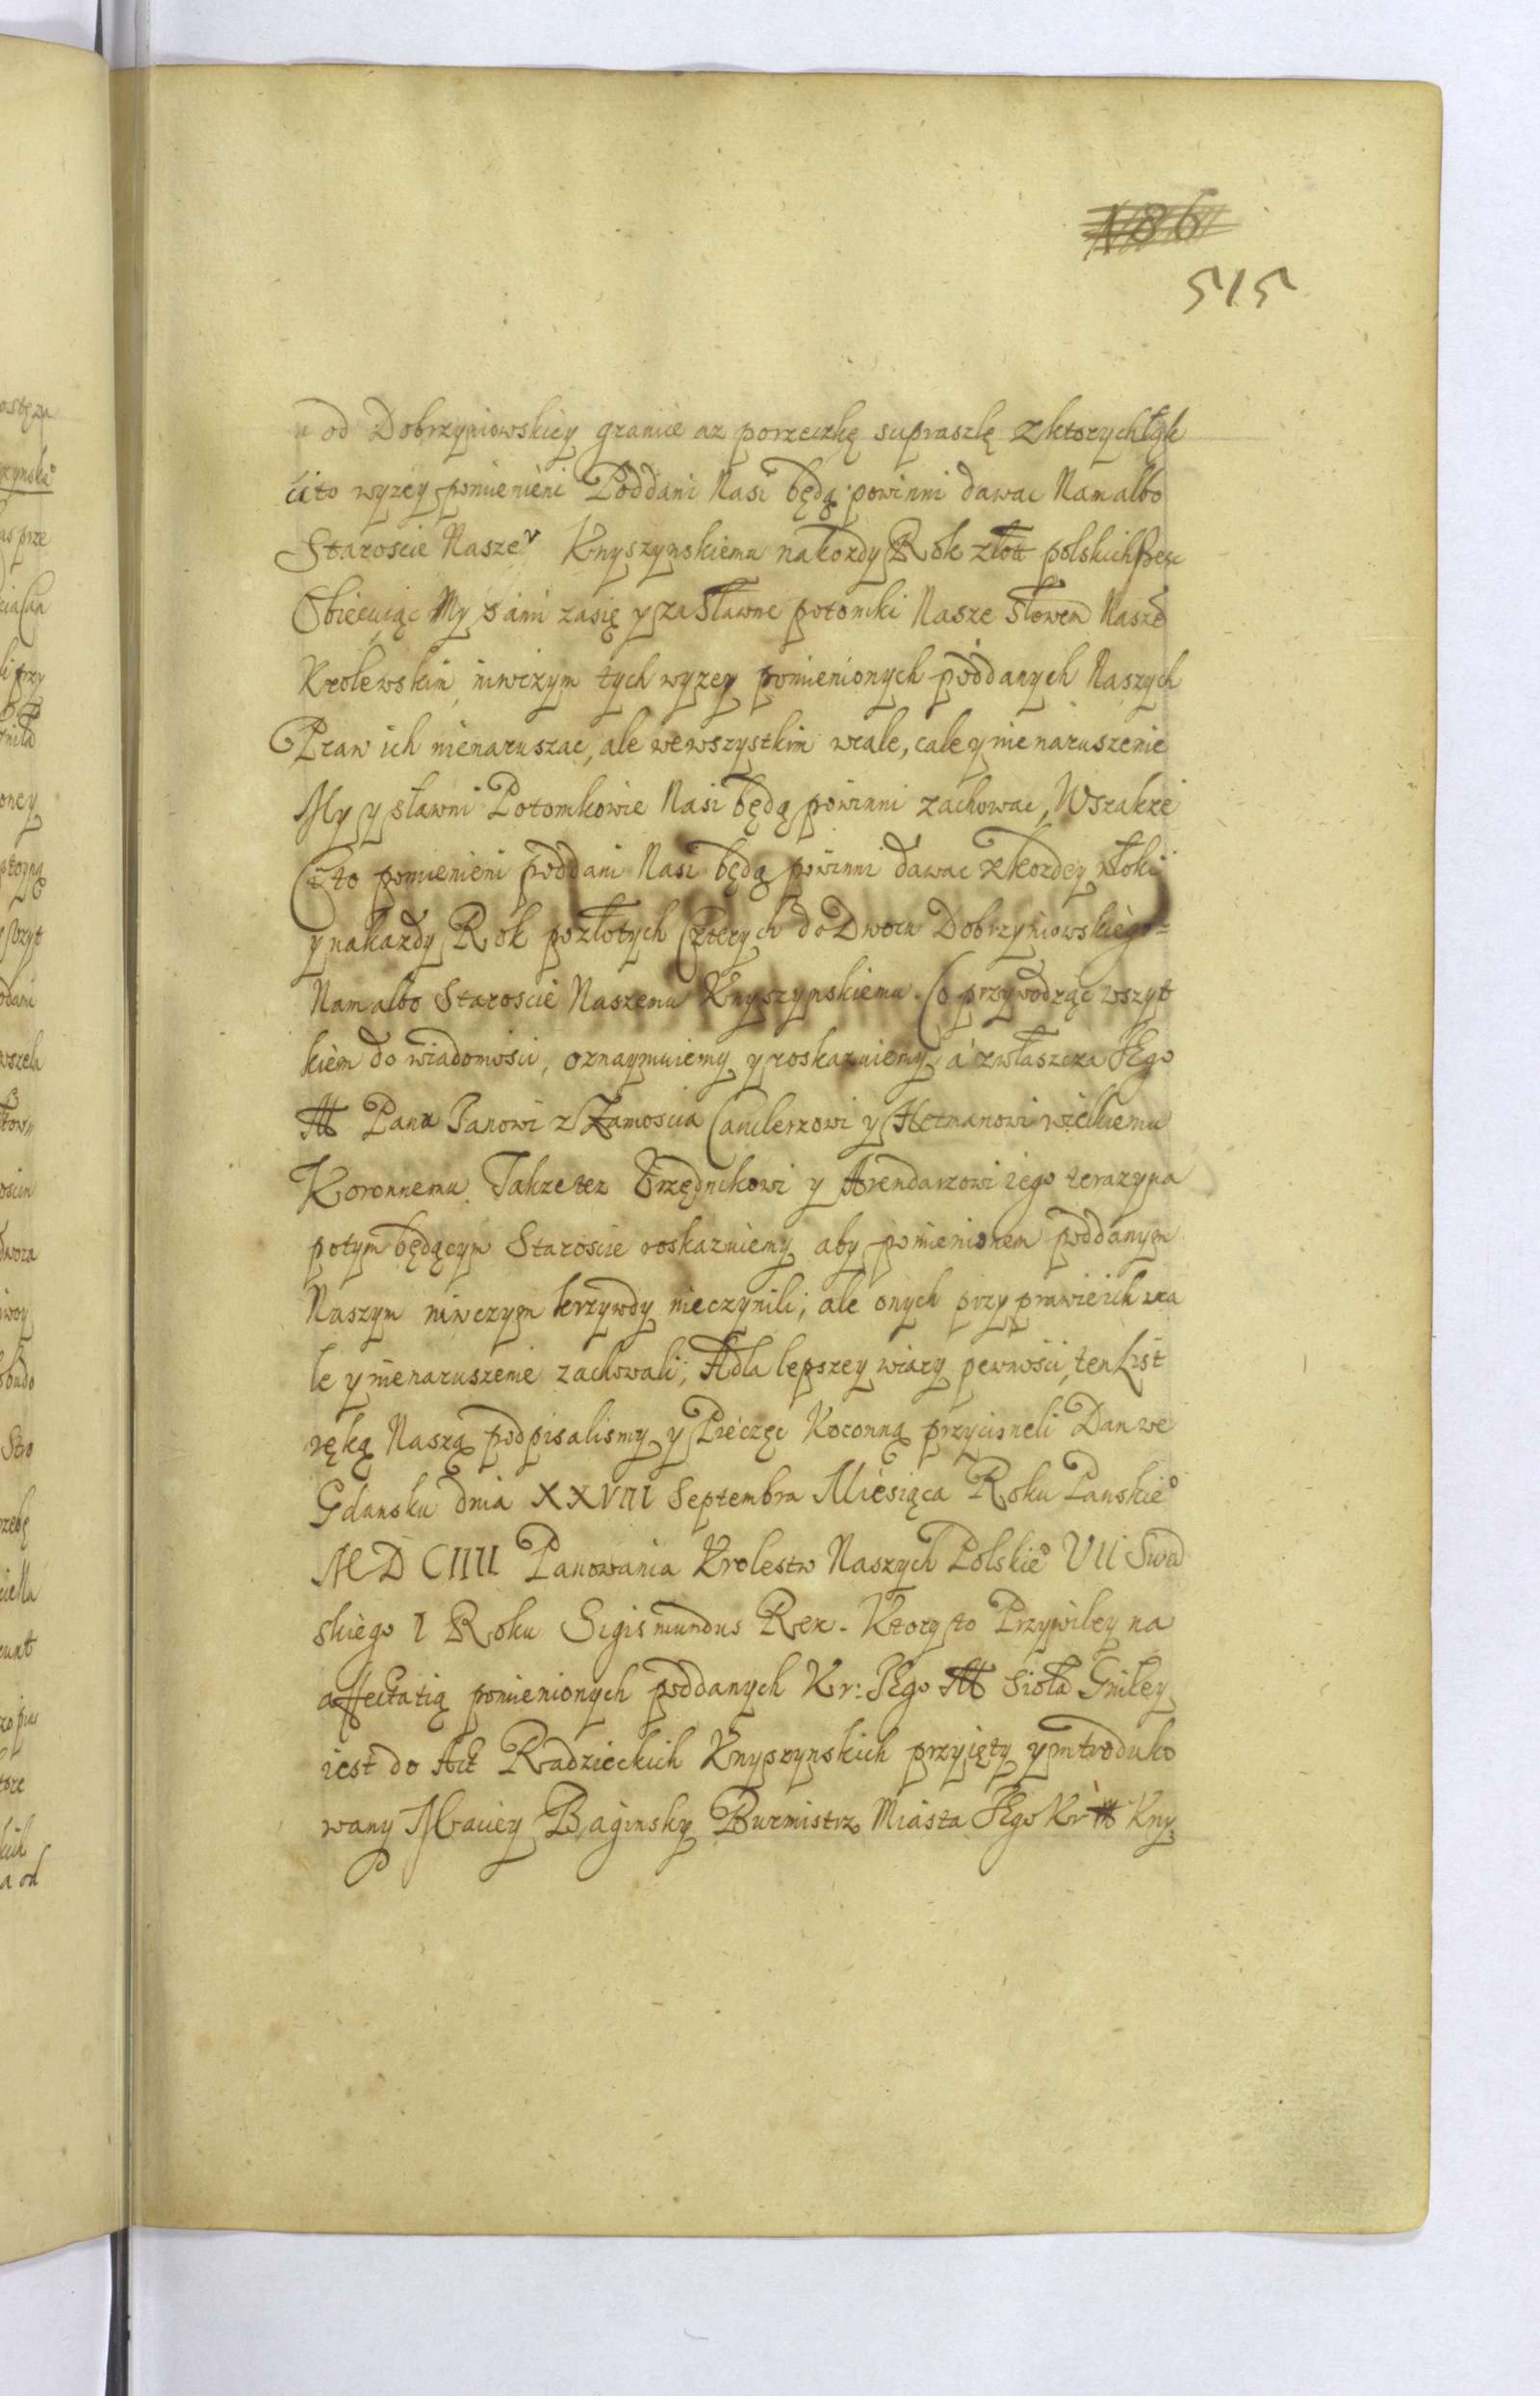 186
515
a od Dobrzyniowskiey granice az porzeczkę supraszlę z ktorych łąk
ci to wyzey pomienieni Poddani Nasi będą powinni dawac Nam albo
Staroscie Nasze° Knyszynskiemu na kozdy Rok złott polskich szesc
Obiecuiąc My sami zasię y za sławne potomki Nasze słowem Nasze
Krolewskim, niwczym tych wyzey pomienionych poddanych Naszych
Praw ich nienaruszac, ale wewszystkim wcale, cale y nienaruszenie
My y sławni Potomkowie Nasi będą powinni zachowac, Wszakze
Ci to pomienieni poddani Nasi będą powinni dawac z kozdey włoki
y nakazdy Rok pozłotych czterych do Dworu Dobrzyniowskiego=
Nam albo Staroscie Naszemu Knyszynskiemu. Co przywodząc wszyt
kiem do wiadomosci, oznaymuiemy y roskazuiemy, a zwłaszcza JEgo
M Panu Janowi z Zamoscia Canclerzowi y Hetmanowi wielkiemu
Koronnemu Takze tez Urzędnikowi y Arendarzowi iego teraz y na
potym będącym Staroscie roskazuiemy aby pomienionem poddanym
Naszym niwczym krzywdy nieczynili; ale onych przy prawie ich wca
le y nienaruszenie zachowali; A dla lepszey wiary pewnosci, ten List
ręką Naszą podpisalismy y Pieczęc Koronną przycisneli Dan we
Gdansku dnia XXVIII Septembra Miesiąca Roku Panskie°
MDCIIII Panowania Krolestw Naszych Polskie° VII Swed
skiego I Roku Sigismundus Rex. Ktory to Przywiley na
affectatią pomienionych poddanych Kr: JEgo M Sioła Gniley
iest do Act Radzieckich Knyszynskich przyięty y introduko
wany Maciey Baginsky Burmistrz Miasta JEgo Kr M Kny